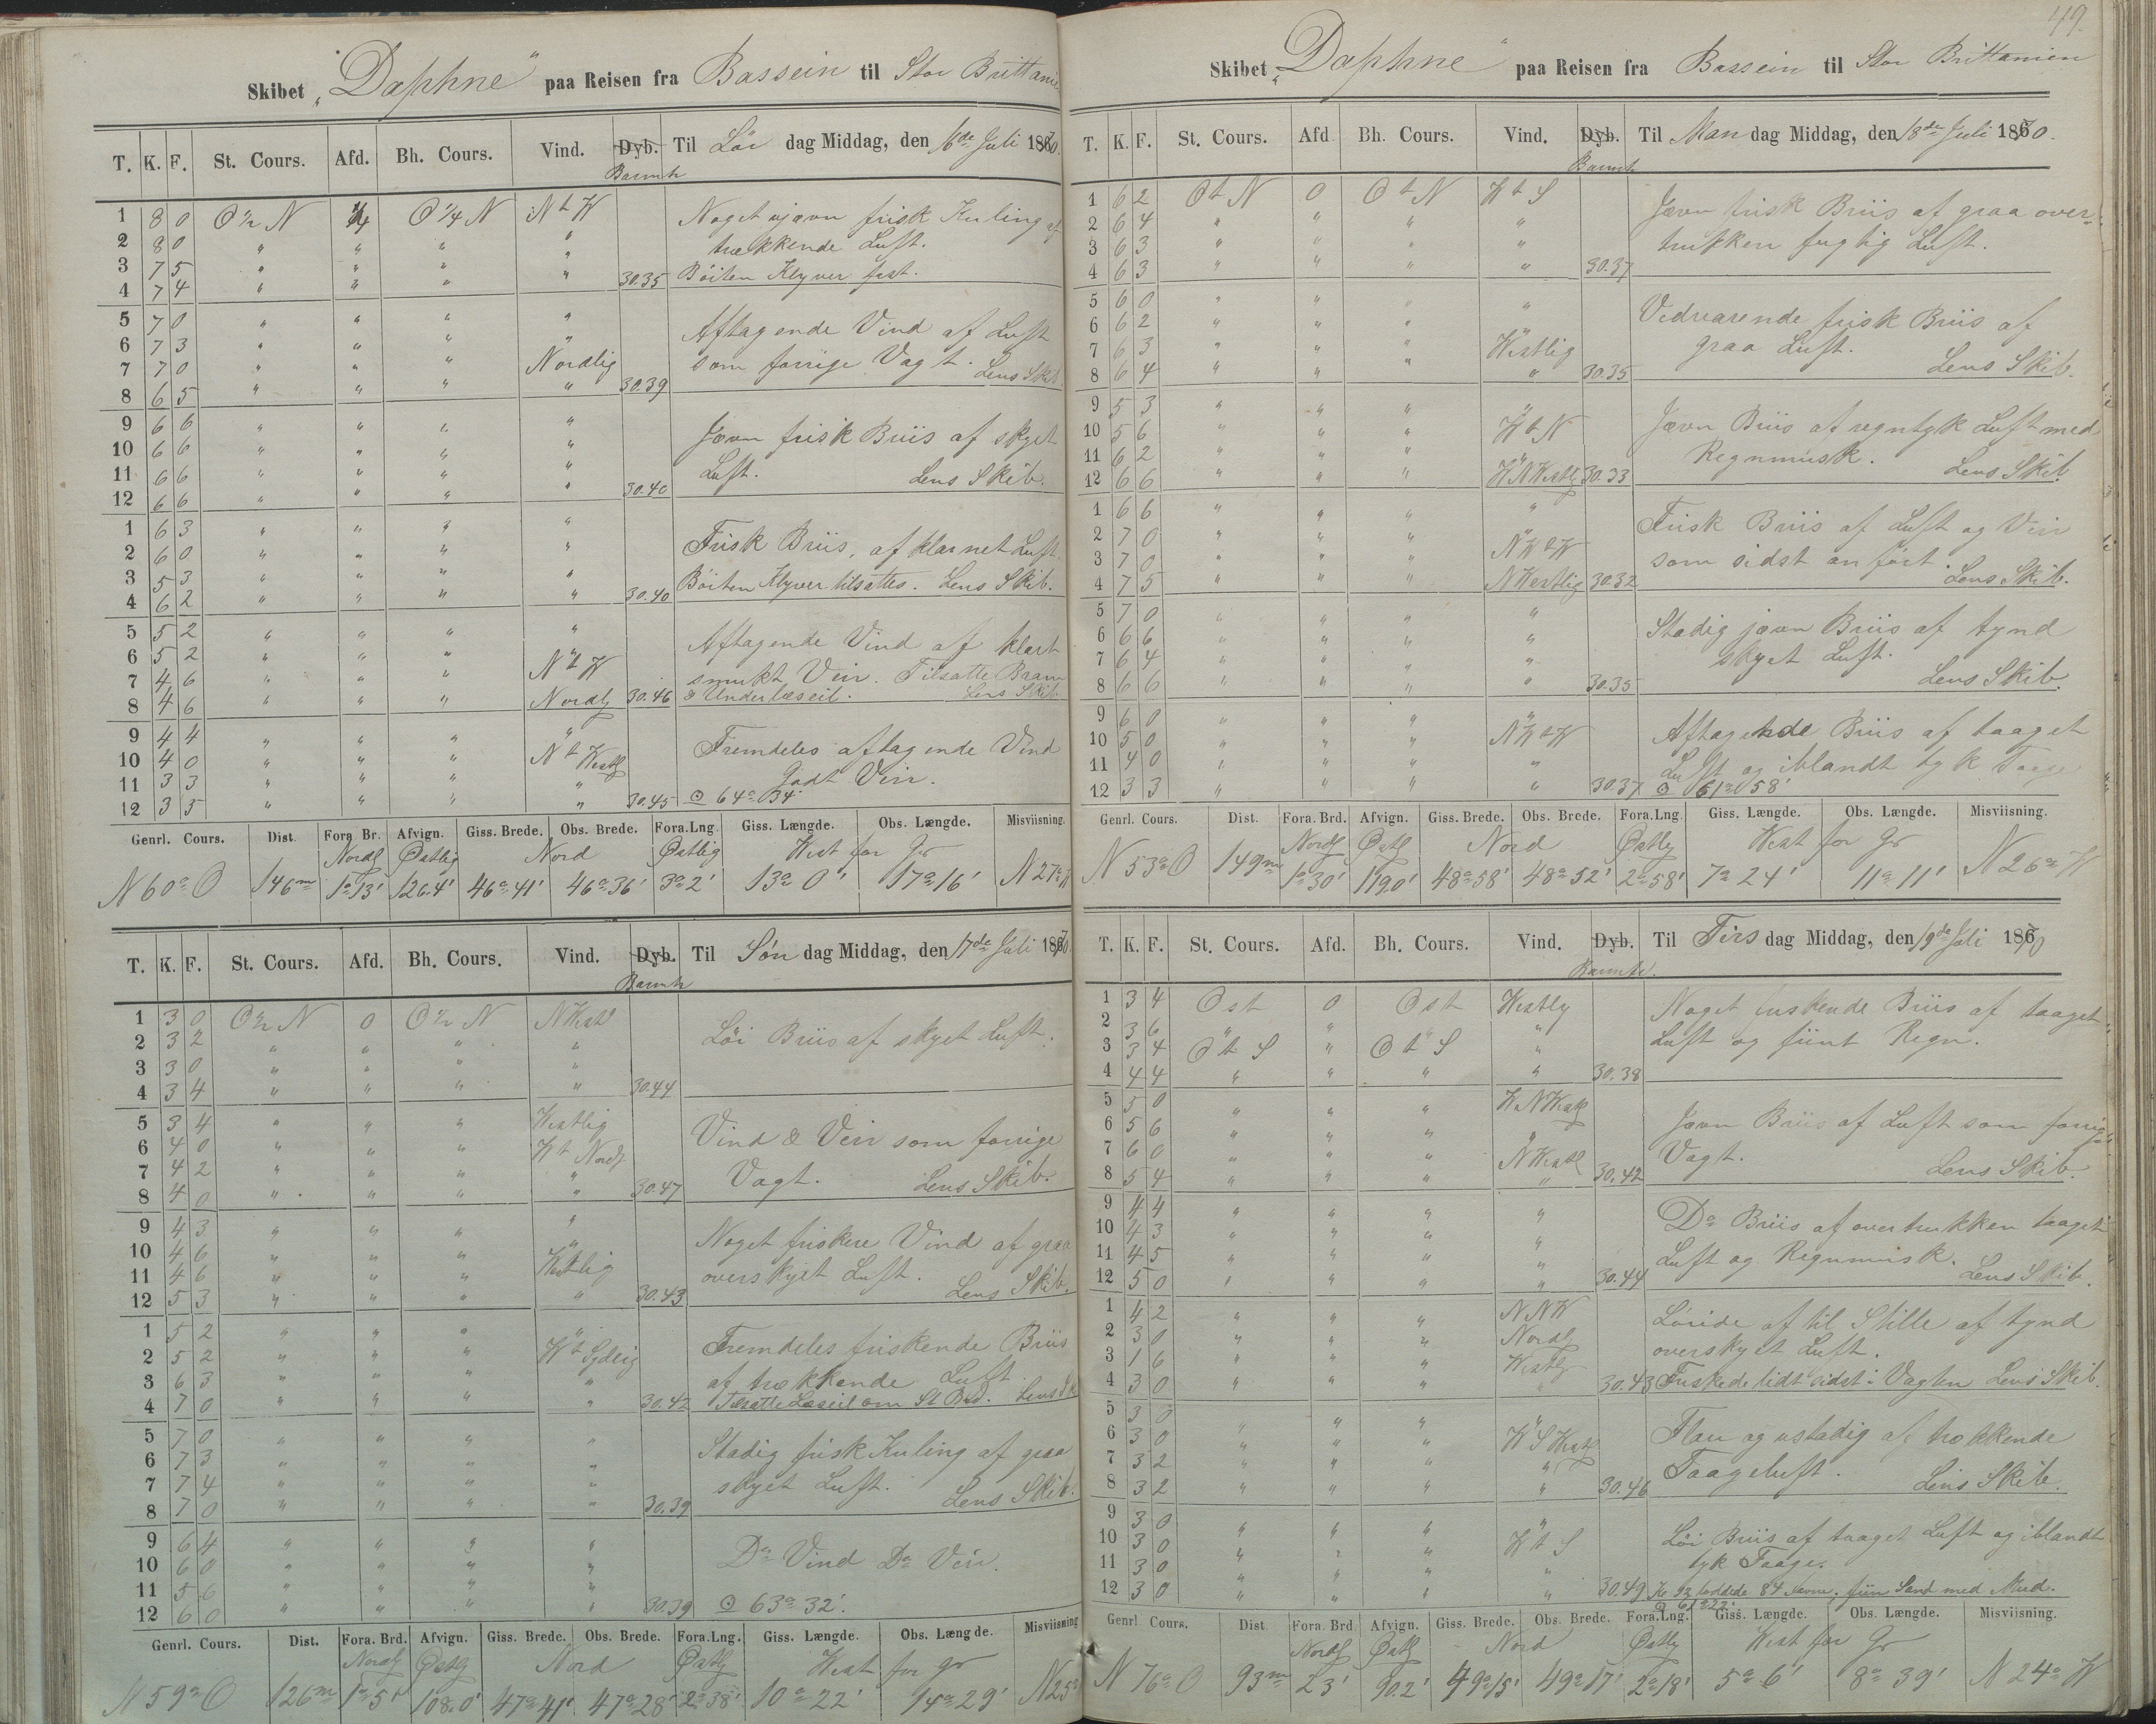 Skibet „Daphne" paa Reisen fra Bassein til Stor Brittanien
T. K. F. St. Cours. Afd. Bh. Cours. Vind. Dyb. Barmtr Til Lør dag Middag, den 16de Juli 1870.
1 8 0 O ½ N ¼ O ¼ N N t W Noget ujævn frisk Kuling af
2 8 0 " " " " trækkende Luft.
3 7 5 " " " " 30.35 Böiten Klyver fast.
4 7 4 " " "
5 7 0 " " " " Aftagende Vind af Luft
6 7 3 " " " "
7 7 0 " " " Nordlig som forrige Vagt. Lens Skib.
8 6 5 " " " " 30.39
9 6 6 " " " " Jævn frisk Briis af skyet
10 6 6 " " " "
11 6 6 " " " " Luft. Lens Skib.
12 6 6 " " " " 30.40
1 6 3 " " " " Frisk Briis, af klarnet Luft.
2 6 0 " " " "
3 5 3 " " " " Böiten Klyver tilsattes. Lens Skib.
4 6 2 " " " " 30.40
5 5 2 " " " " Aftagende Vind af klart
6 5 2 " " " N t W
7 4 6 " " " " smukt Veir. Tilsatte Bram
8 4 6 " " " Nordlg 30.46 & Underlæseil. Lens Skib
9 4 4 " " " " Fremdeles aftagende Vind
10 4 0 " " " N t Westlg
11 3 3 " " " " Godt Veir.
12 3 5 " " " " 30.45 ⊙ 64° 34'
Genrl. Cours. Dist. Fora. Br. Afvign. Giss. Brede. Obs. Brede. Fora. Lng. Giss. Længde. Obs. Længde. Misviisning.
Nordlg Østlig Nord Østlig West for Gr
N 60° O 146m 1° 13' 126.4' 46° 41' 46° 36' 3° 2' 13° 0' 17° 16' N 27° W
T. K. F. St. Cours. Afd. Bh. Cours. Vind. Dyb. Barmtr Til Søn dag Middag, den 17de Juli 1870.
1 3 0 O ½ N 0 O ½ N NWestl Löi Briis af skyet Luft.
2 3 2 " " " "
3 3 0 " " " "
4 3 4 " " " " 30.44
5 3 4 " " " Westlig Vind & Veir som forrige
6 4 0 " " " W t Nordlg
7 4 2 " " " " Vagt. Lens Skib.
8 4 0 " " " " 30.47
9 4 3 " " " " Noget friskere Vind af graa
10 4 6 " " " "
11 4 6 " " " Westlig overskyet Luft. Lens Skib.
12 5 3 " " " " 30.43
1 5 2 " " " " Fremdeles friskende Briis
2 5 2 " " " W t Sydlig
3 6 3 " " " " af trækkende Luft
4 7 0 " " " " 30.42 Tilsatte Læseil om St Brd. Lens Sk
5 7 0 " " " " Stadig frisk Kuling af graa
6 7 3 " " " "
7 7 4 " " " " skyet Luft. Lens Skib.
8 7 0 " " " " 30.39
9 6 4 " " " " Do Vind Do Veir.
10 6 0 " " " "
11 5 6 " " " "
12 6 0 " " " " 30.39 ⊙ 63° 32'.
Genrl. Cours. Dist. Fora. Brd. Afvign. Giss. Brede. Obs. Brede. Fora. Lng. Giss. Længde. Obs. Længde. Misviisning
Nordlg Østlg Nord Østlg West for Gr
N 59° O 126m 1° 5' 108.0' 47° 41' 47° 28' 2° 38' 10° 22' 14° 29' N 25°
49.
Skibet „Daphne" paa Reisen fra Bassein til Stor Brittanien
T. K. F. St. Cours. Afd Bh. Cours. Vind. Dyb. Barmtr Til Man dag Middag, den 18de Juli 1870.
1 6 2 O t N 0 O t N W t S Jævn frisk Briis af graa over-
2 6 4 " " " "
3 6 3 " " " " trukken fugtig Luft.
4 6 3 " " " " 30.37
5 6 0 " " " " Vedvarende frisk Briis af
6 6 2 " " " "
7 6 3 " " " Westlig graa Luft.
8 6 4 " " " " 30.35 Lens Skib.
9 5 3 " " " " Jævn Briis af regntyk Luft med
10 5 6 " " " W t N
11 6 2 " " " " Regnmusk. Lens Skib.
12 6 6 " " " WNWestlg 30.33
1 6 6 " " " " Frisk Briis af Luft og Veir
2 7 0 " " " "
3 7 0 " " " NW t W som sidst anført.
4 7 5 " " " NWestlig 30.32 Lens Skib.
5 7 0 " " " " Stadig jævn Briis af tynd
6 6 6 " " " "
7 6 4 " " " " skyet Luft.
8 6 6 " " " " 30.35 Lens Skib.
9 6 0 " " " " Aftagende Briis af taaget
10 5 0 " " " NW t W
11 4 0 " " " " Luft og iblandt tyk Taage
12 3 3 " " " " 30.37 ⊙ 61° 58'
Genrl. Cours. Dist. Fora. Brd. Afvign. Giss. Brede. Obs. Brede. Fora. Lng Giss. Længde. Obs. Længde. Misviisning.
Nordlg Østlg Nord Østlg West for Gr
N 53° O 149m 1° 30' 119.0' 48° 58' 48° 52' 2° 58' 7° 24' 11° 11' N 26° W
T. K. F. St. Cours. Afd. Bh. Cours. Vind. Dyb. Barmtr. Til Tirs dag Middag, den 19de Juli 1870
1 3 4 Ost 0 Ost Westlg Noget friskende Briis af taaget
2 3 6 " " " "
3 3 4 O t S " O t S " Luft og fiint Regn.
4 4 4 " " " " 30.38
5 5 0 " " " WNWestlg Jævn Briis af Luft som forrige
6 5 6 " " " "
7 6 0 " " " NWestl Vagt. Lens Skib.
8 5 4 " " " " 30.42
9 4 4 " " " " Do Briis af overtrukken taaget
10 4 3 " " " "
11 4 5 " " " " Luft og Regnmusk.
12 5 0 " " " " 30.44 Lens Skib.
1 4 2 " " " NNW Løiede af til Stille af tynd
2 3 0 " " " Nordlg overskyet Luft.
3 1 6 " " " Westlg
4 3 0 " " " " 30.43 Friskede lidt sidst i Vagten Lens Skib.
5 3 0 " " Flau og ustadig af trækkende
6 3 0 " " " WSWestl
7 3 2 " " " " Taageluft.
8 3 2 " " " " 30.46 Lens Skib.
9 3 0 " " " " Löi Briis af taaget Luft og iblandt
10 3 0 " " " W t S
11 3 0 " " " " tyk Taage.
12 3 0 " " " " 30.49 loddede 84 Favne, fiin Sand med Mud.
Genrl Cours. Dist Fora. Brd Afvign. Giss. Brede. Obs. Brede. Fora. Lng. Giss. Længde. Obs. Længde. Misviisning.
Nordlg Østlg Nord Østlg West for Gr
N 76° O 93m 23' 90.2' 49° 15' 49° 17' 2° 18' 5° 6' 8° 39' N 24° W